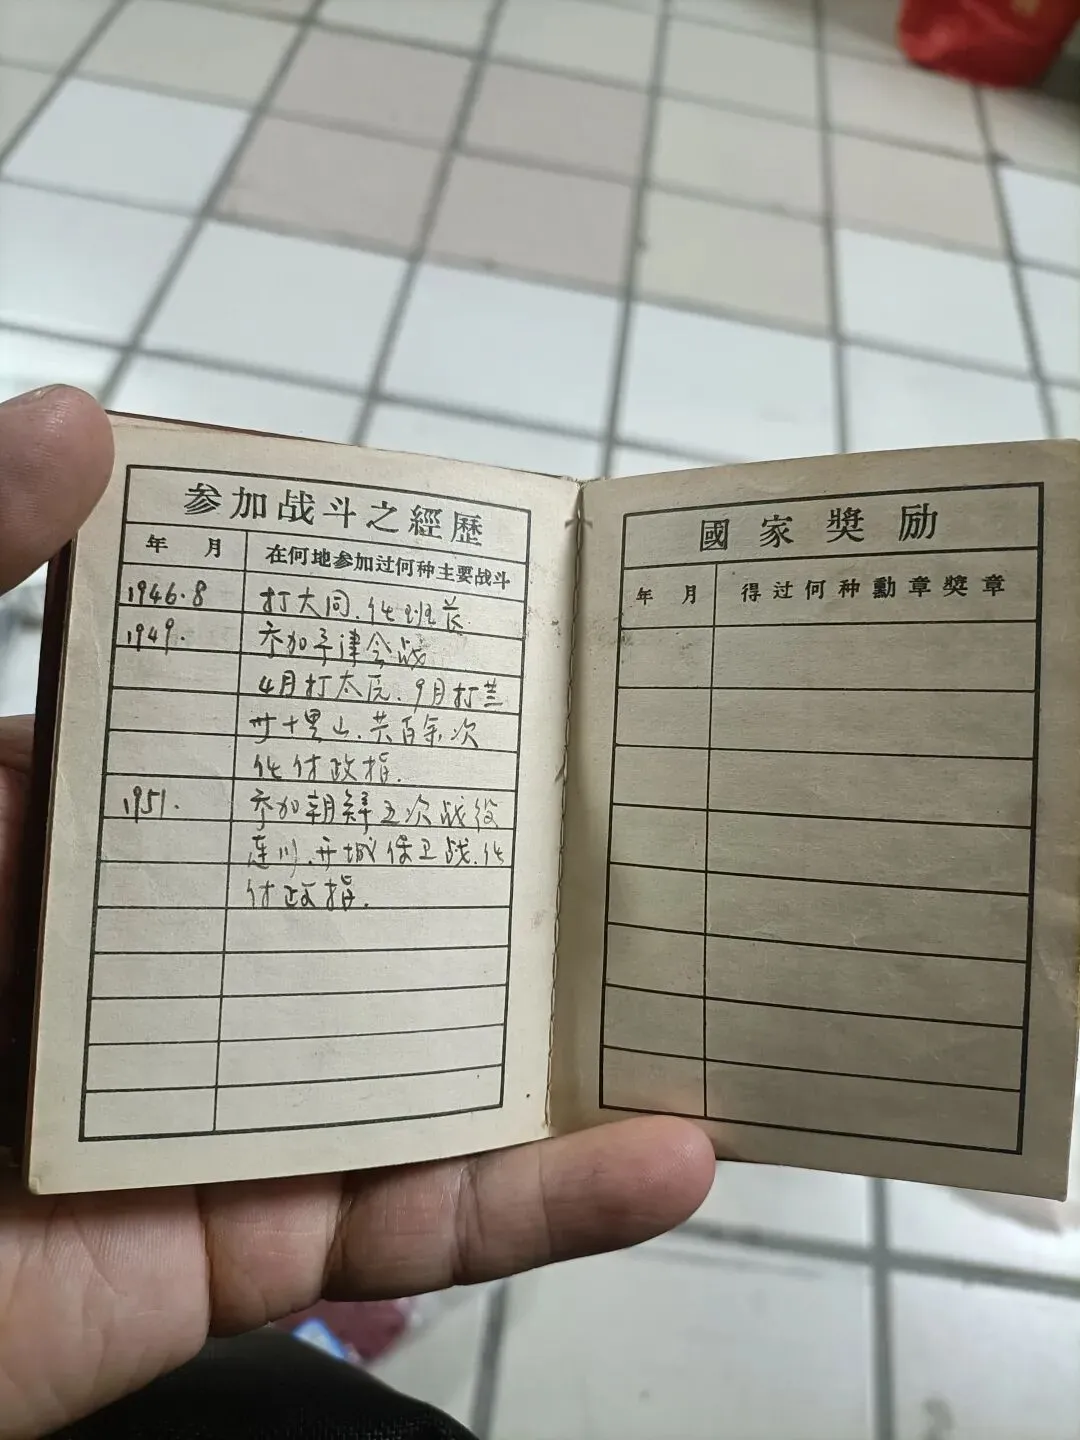 参加战斗之經歷
年 月 在何地参加过何种主要战斗
1946.8 打大同、化班长
1949. 参加平津会战
4月打太原、9月打兰
州十里山、共百余次
化付政指.
1951. 参加朝鲜五次战役
涟川、开城保卫战、化
付政指.
國家獎励
年 月 得过何种勳章獎章